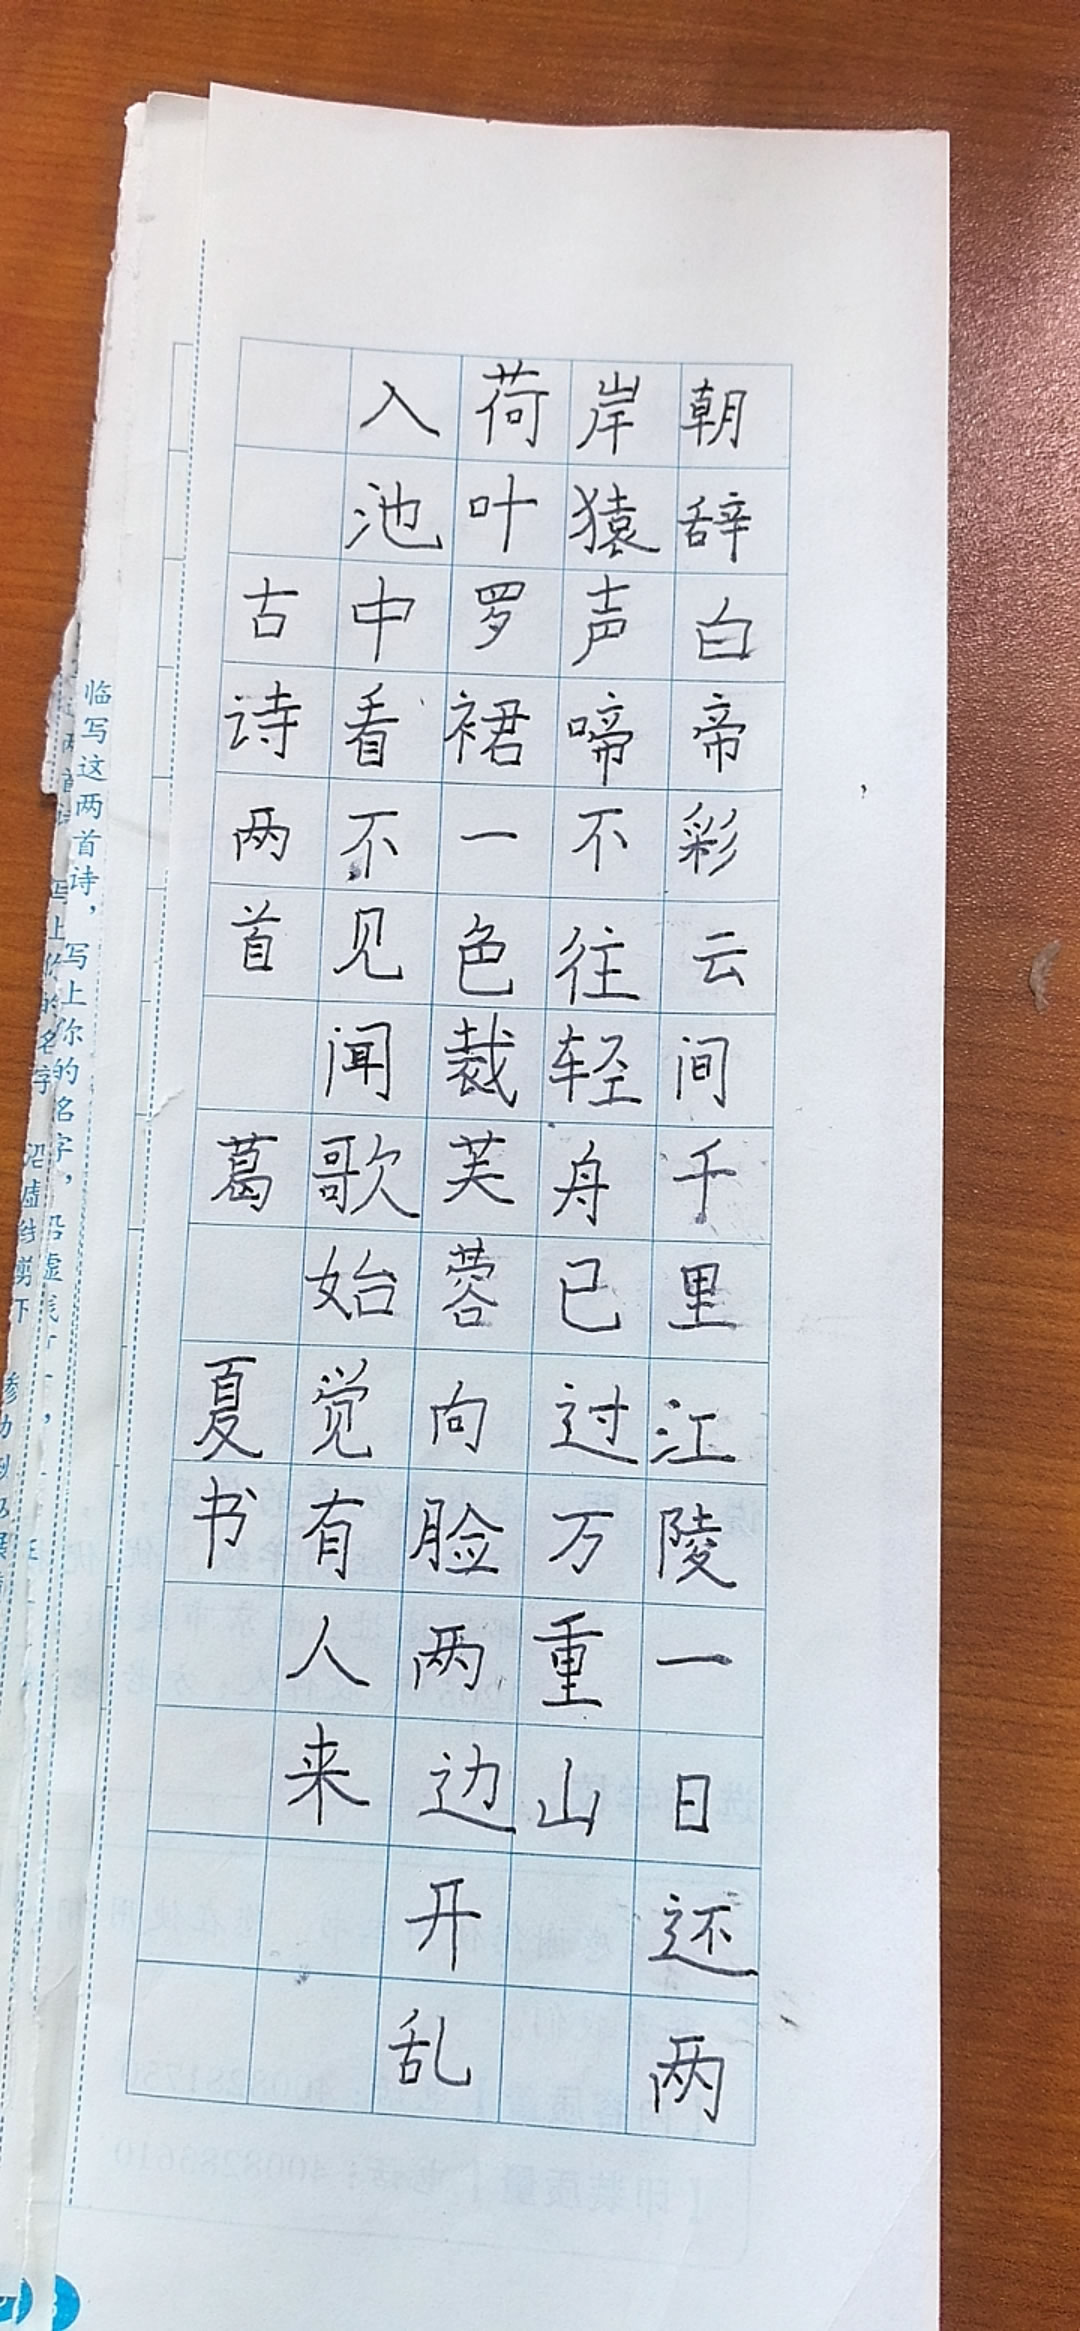 朝辞白帝彩云间千里江陵一日还两
岸猿声啼不往轻舟已过万重山
荷叶罗裙一色裁芙蓉向脸两边开乱
入池中看不见闻歌始觉有人来
古诗两首 葛 夏书
临写这两首诗，写上你的名字，沿虚线剪下